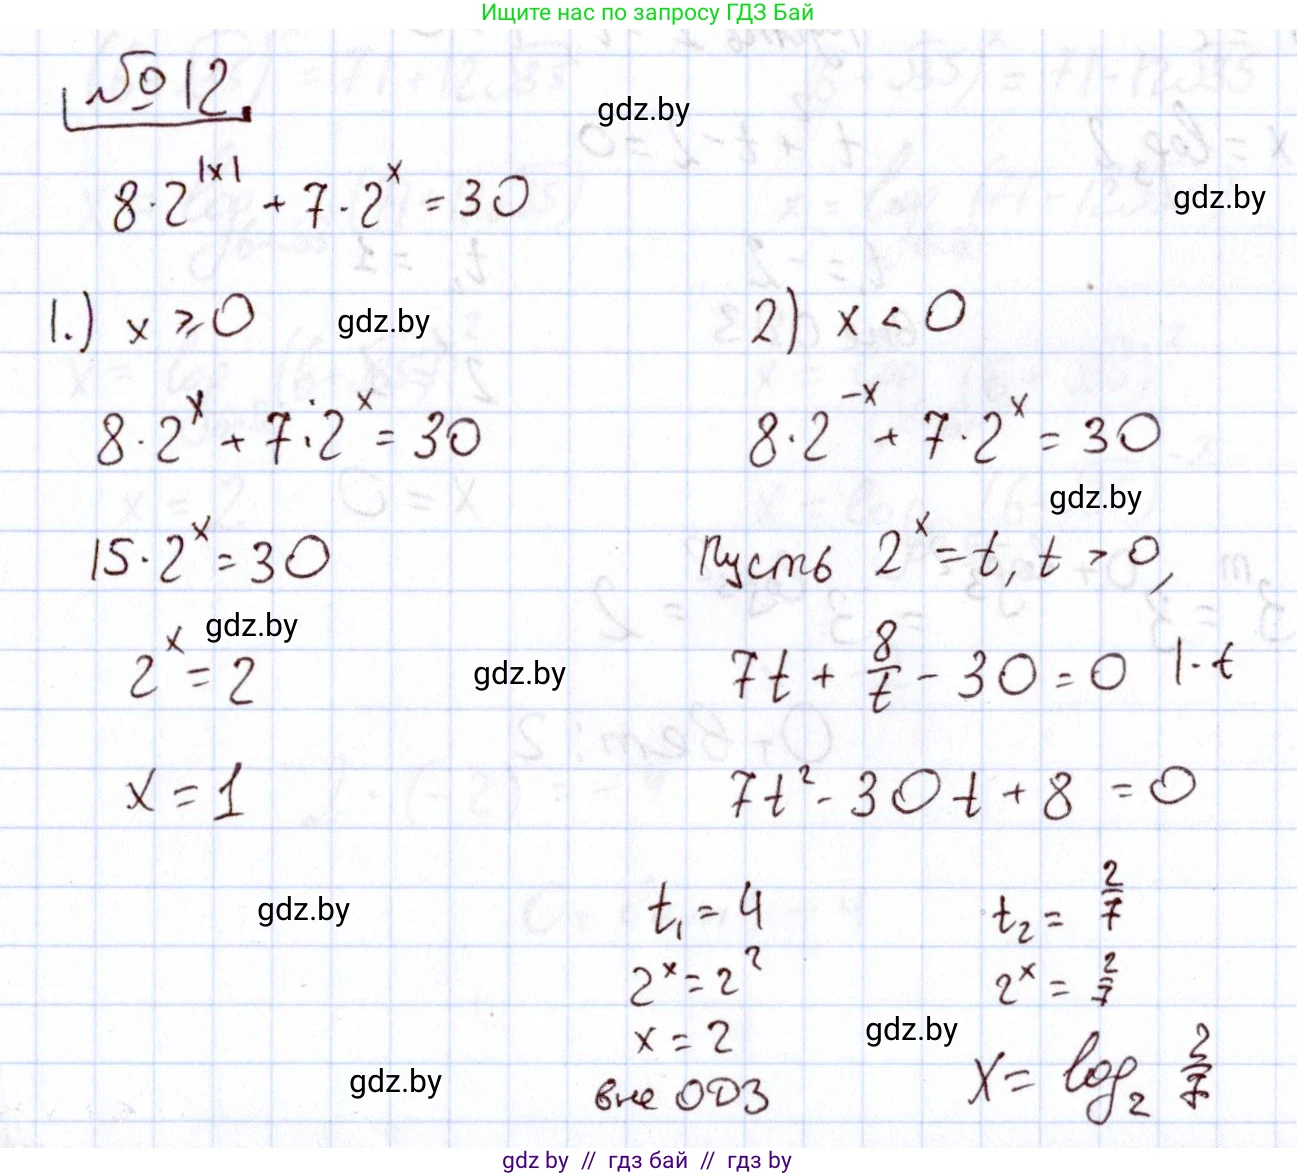 Ищите нас по запросу ГДЗ Бай
№12.
gdz.by
8·2^|x| + 7·2^x = 30
gdz.by
1.) x ⩾ 0
gdz.by
8·2^x + 7·2^x = 30
15·2^x = 30
gdz.by
2^x = 2
gdz.by
x = 1
gdz.by
gdz.by
2) x < 0
8·2^-x + 7·2^x = 30
gdz.by
Пусть 2^x = t, t > 0,
7t + 8/t - 30 = 0 |·t
7t² - 30t + 8 = 0
t₁ = 4
2^x = 2²
x = 2
вне ОДЗ
t₂ = 2/7
2^x = 2/7
gdz.by
x = log₂ 2/7
gdz by // гдз бай // гдз by